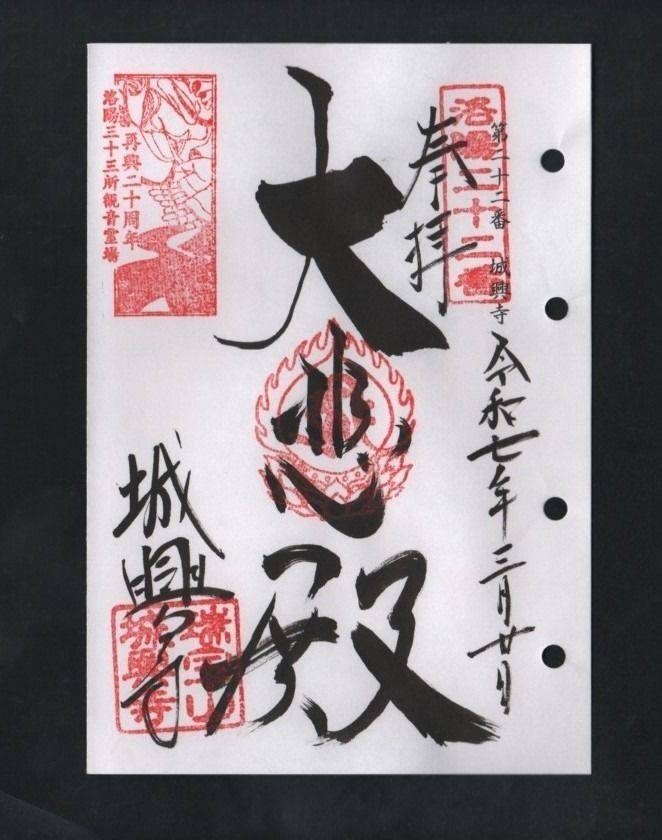 洛陽二十二番
第二十二番 城興寺
令和七年三月廿日
奉拝
大悲殿
再興二十周年
洛陽三十三所觀音霊場
城興寺
瑞宝山
城興寺